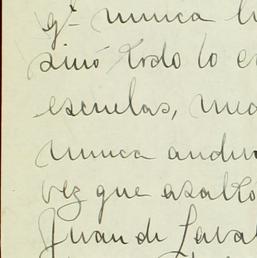 qᵉ nunca h
sinó todo lo e
escuelas, med
nunca anduv
vez que asalto
Juan de Laval